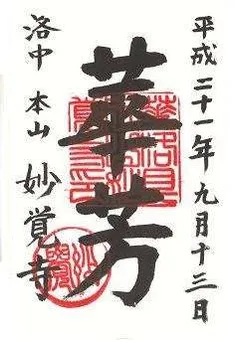 平成二十一年九月十三日
華芳
洛中 本山 妙覚寺